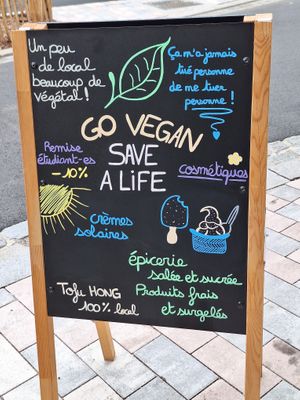 Un peu
de local
beaucoup de
végétal !
Ça m'a jamais
tué personne
de me tuer
personne !
GO VEGAN
SAVE
A LIFE
Remise
étudiant-es
-10%
cosmétiques
crèmes
solaires
épicerie
salée et sucrée
Produits frais
et surgelés
Tofu HONG
100% local